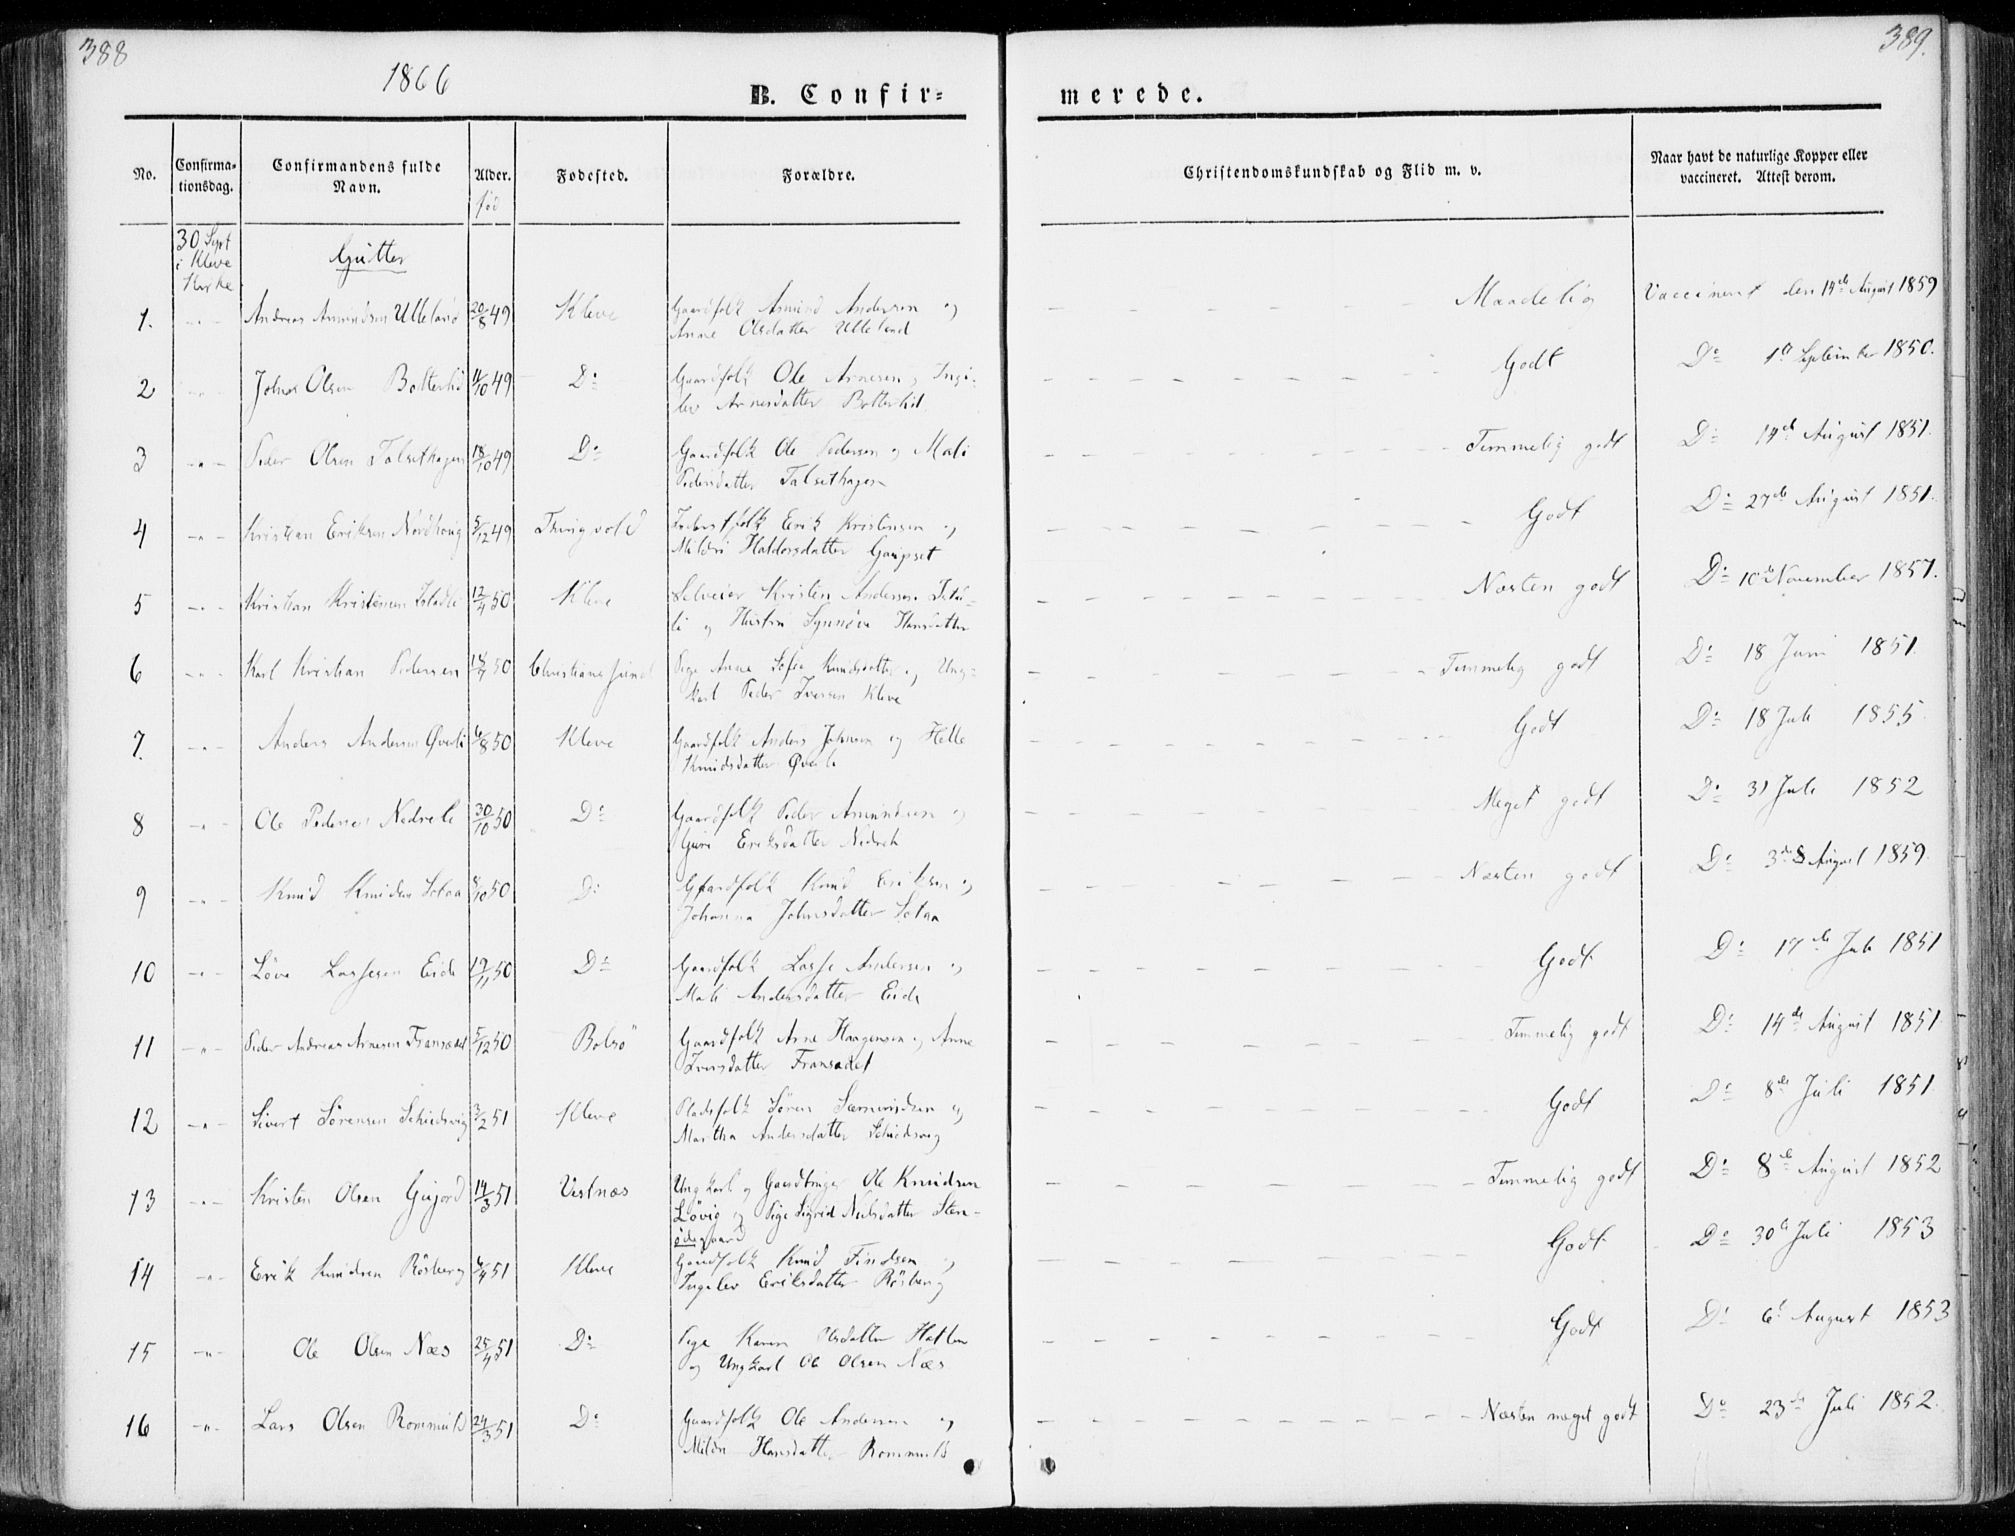 388
389.
1866
B. Confir=
merede.
No.
Confirma=
tionsdag.
Confirmandens fulde
Navn.
Alder.
fød
Fødested.
Forældre.
Christendomskundskab og Flid m. v.
Naar havt de naturlige Kopper eller
vaccineret. Attest derom.
30 Sept
i Kleve
Kirke
Gutter
1. Andreas Amundsen Ulleland 20/8 49 Kleve Gaardfolk Amund Andersen og Maadelig Vaccineret den 14de August 1859
Anne Olsdatter Ulleland
2 Johns Olsen Bolterlid 11/10 49 Do Gaardfolk Ole Arnesen og Inge- Godt Do 1ste September 1850.
lev Arnesdatter Botterlid
3 Peder Olsen Talsethagen 18/10 49 Do Gaardfolk Ole Pedersen og Mali Temmelig godt Do 14de August 1851.
Pedersdatter Talsethagen
4 Kristian Eriksen Nordhoug 5/12 49 Thingvold Erik Kristensen og Godt Do 27de August 1851.
Mildri Haldorsdatter Gaupset
5 Kristian Kristensen 12/4 50 Kleve Selveier Kristen Andersen Næsten godt Do 10de November 1857.
li og Hustru Synnøve Hansdatter
6 Karl Kristian Pedersen 50 Christiansund Pige Anne Sofie Knudsdatter og Ung- Temmelig godt Do 18 Juni 1851.
karl Peder Iversen Kleve
7. Anders Andersen Øverli 6/8 50 Kleve Gaardfolk Anders Johnsen og Helle Godt Do 18 Juli 1855.
Knudsdatter Øverli
8 Ole Pedersen Nedreli 30/10 50 Do Gaardfolk Peder Amundsen og Meget godt Do 31 Juli 1852
Guri Eriksdatter Nedreli
9 Knud Knudsen Sotaa 50 Do Gaardfolk Knud Eriksen og Næsten godt Do August 1859.
Johanna Johnsdatter Sotaa
10 Løve Lassesen Eide 19/11 50 Do Gaardfolk Lasse Andersen og Godt Do 17de Juli 1851
Mali Andersdatter Eide
11 Peder Andreas Arnesen Fransædet 5/12 50 Bolsø Gaardfolk Arne Haagensen og Anne Temmelig godt Do 14de August 1851.
Iversdatter Fransædet
12 Sivert Sørensen 3/2 51 Kleve Pladsfolk Søren og Godt Do 8de Juli 1851.
Martha Andersdatter
13 Kristen Olsen Gujord 14/3 51 Vestnæs Ungkarl og Gaardbruger Ole Knudsen Temmelig godt Do 8de August 1852
Løvig og Pige Sigrid Nielsdatter Sten-
ødegaard
14 Erik Knudsen Røsberg 6/4 51 Kleve Gaardfolk Knud Findsen og Godt Do 30te Juli 1853
Ingelev Eriksdatter Røsberg
15 Ole Olsen Næs 25/4 51 Do Pige Karen Olsdatter Hatlen Godt Do 6te August 1853
og Ungkarl Ole Olsen Næs
16 Lars Olsen Rommuld 24/3 51 Do Gaardfolk Ole Andersen og Næsten meget godt Do 23de Juli 1852.
Mildri Hansdatter Rommuld